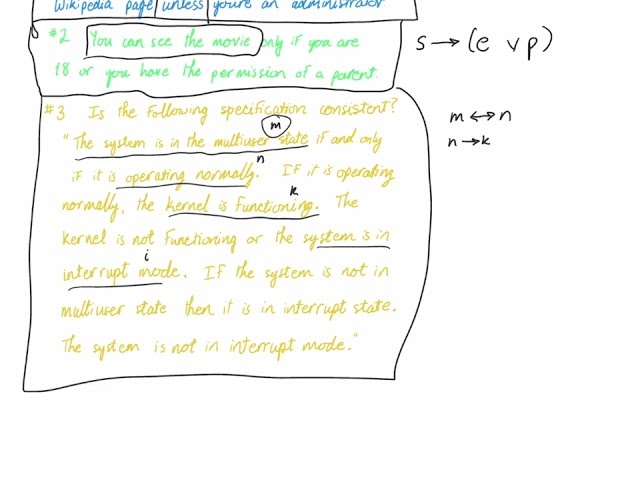 Wikipedia page unless you're an administrator
#2 You can see the movie only if you are
18 or you have the permission of a parent.
s → (e ∨ p)
#3 Is the following specification consistent?
m
"The system is in the multiuser state if and only
n
if it is operating normally. If it is operating
k
normally, the kernel is functioning. The
kernel is not functioning or the system is in
i
interrupt mode. If the system is not in
multiuser state then it is in interrupt state.
The system is not in interrupt mode."
m ↔ n
n → k